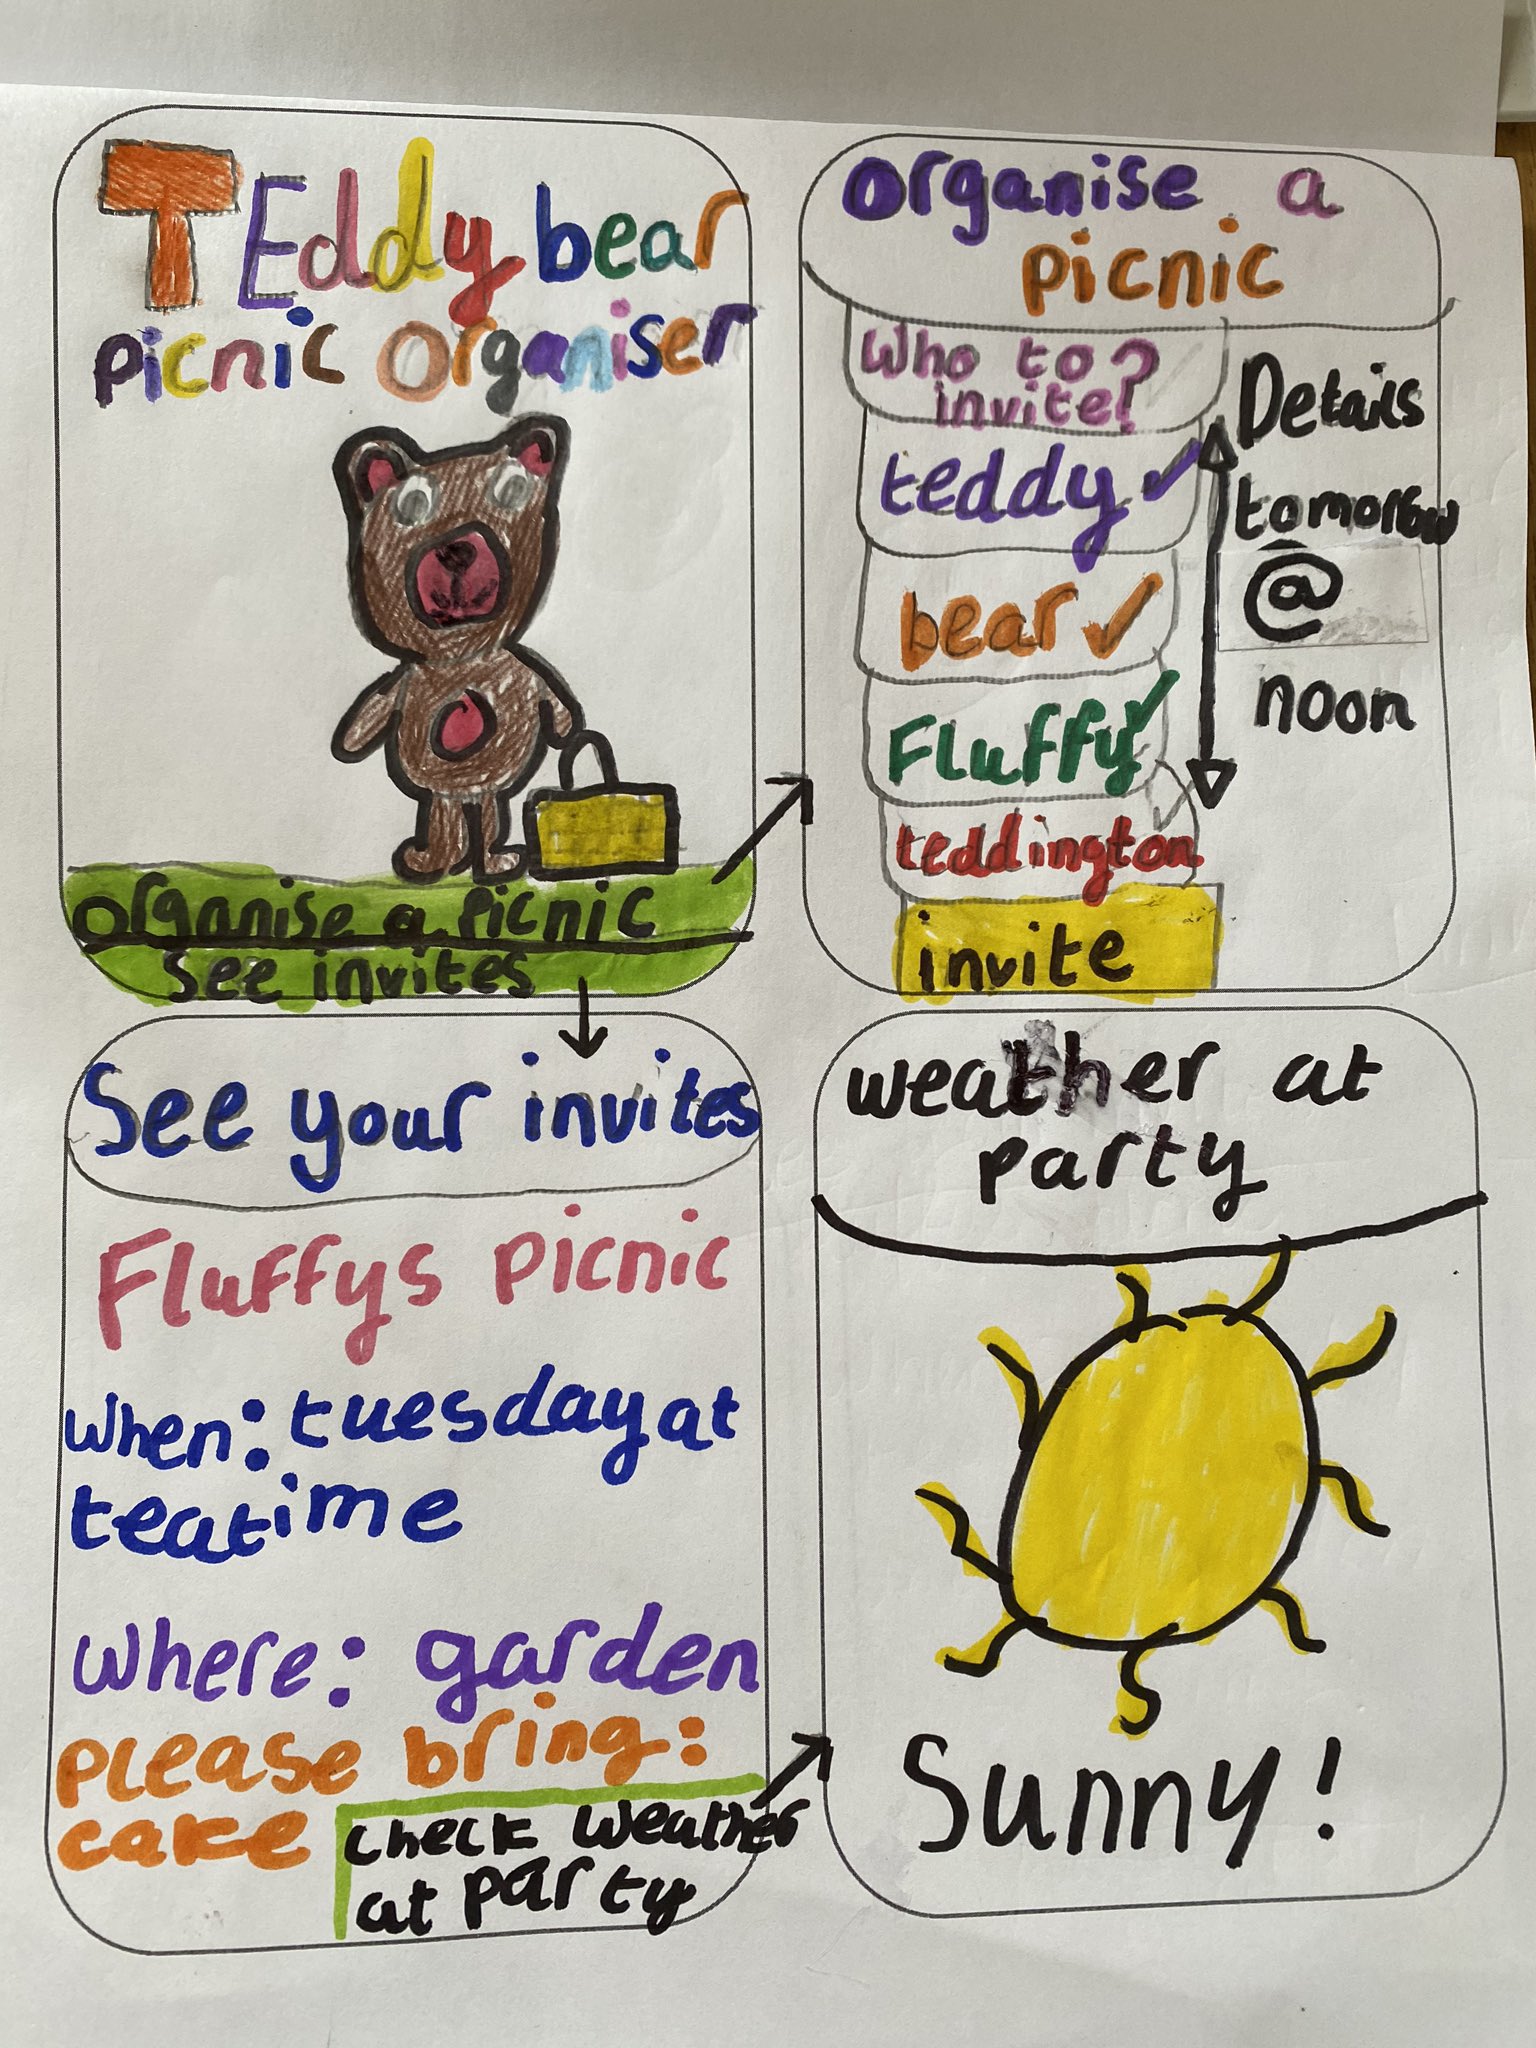 TEddy bear
picnic organiser
organise a picnic
See invites
organise a
picnic
Who to
invite?
teddy ✓
bear ✓
Fluffy ✓
teddington
invite
Details
tomorrow
@
noon
See your invites
Fluffys picnic
when: tuesday at
teatime
where: garden
please bring:
cake
check weather
at party
weather at
party
Sunny!